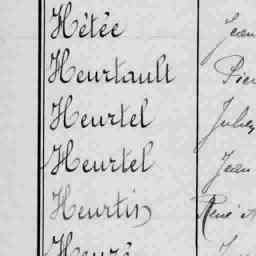 Hêtée Jean
Heurtault Pier
Heurtel Jules
Heurtel Jean
Heurtin René et
Heuzé